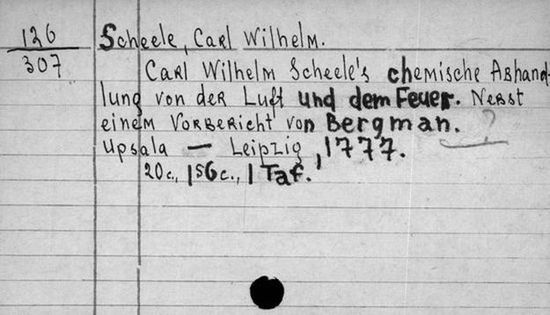 126
307
Scheele, Carl Wilhelm.
Carl Wilhelm Scheele's chemische Abhand-
lung von der Luft und dem Feuer. Nebst
einem Vorbericht von Bergman. ?
Upsala — Leipzig, 1777.
20c., 156c., 1 Taf.